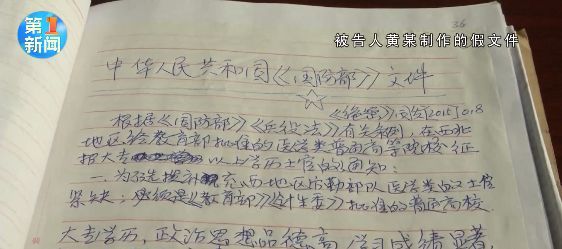 第1
新闻
36
被告人黄某制作的假文件
中华人民共和国《国防部》文件
《绝密》国发2015)018
根据《国防部》《兵役法》有关条例,在西北
地区给教育部批准的医学类普通高等院校征
招大专以上学历士官的通知:
一、为了选拔补充西地区后勤部队医学类的士官
紧缺;必须是《教育部》批准的普通高校.
大专学历,政治思想品德高,学习成绩显著